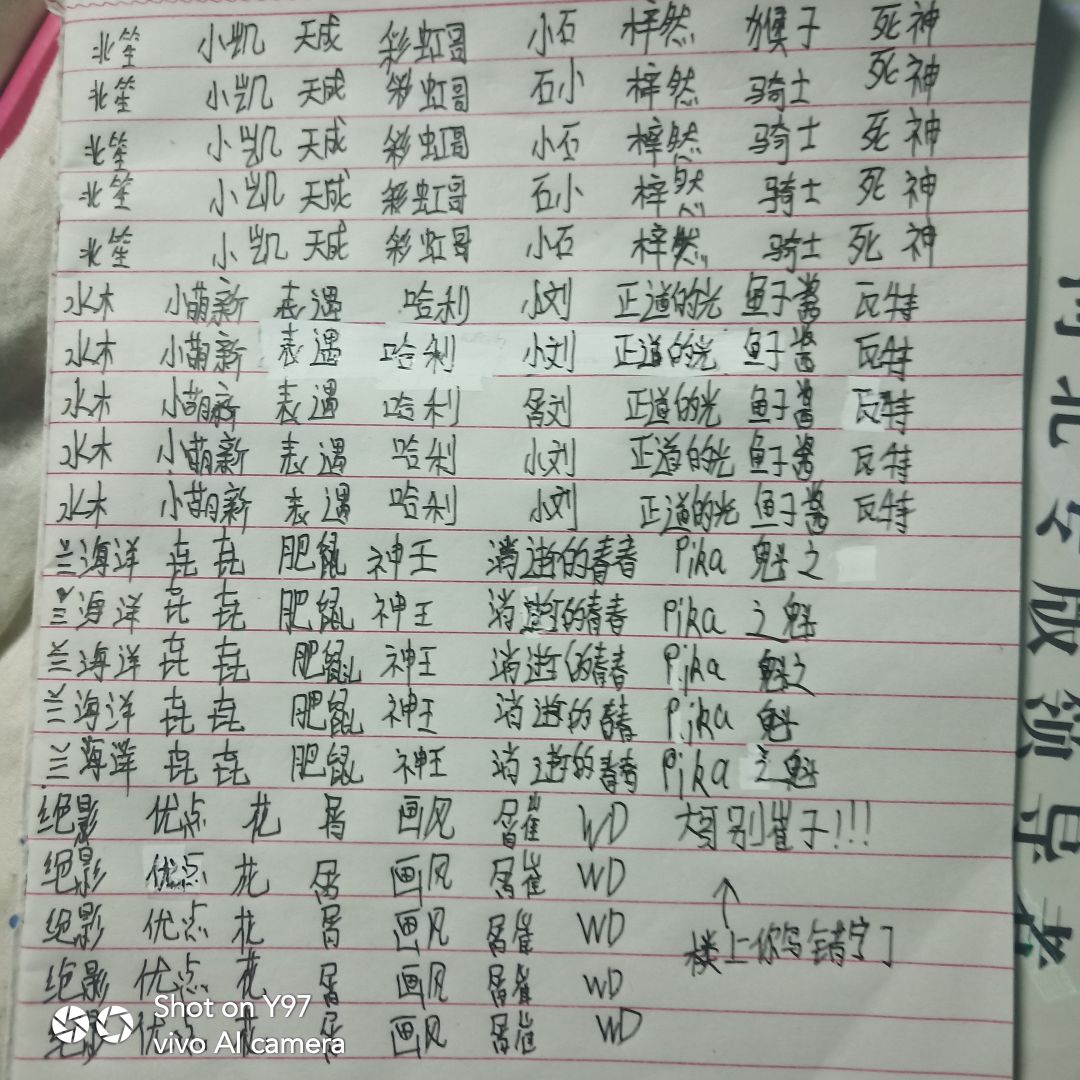 北笙 小凯 天成 彩虹哥 小石 梓然 猴子 死神
北笙 小凯 天成 彩虹哥 石小 梓然 骑士 死神
北笙 小凯 天成 彩虹哥 小石 梓然 骑士 死神
北笙 小凯 天成 彩虹哥 石小 梓然 骑士 死神
北笙 小凯 天成 彩虹哥 小石 梓然 骑士 死神
水木 小萌新 表遇 哈利 小刘 正道的光 鱼子酱 瓦特
水木 小萌新 表遇 哈利 小刘 正道的光 鱼子酱 瓦特
水木 小萌新 表遇 哈利 屑刘 正道的光 鱼子酱 瓦特
水木 小萌新 表遇 哈利 小刘 正道的光 鱼子酱 瓦特
水木 小萌新 表遇 哈利 小刘 正道的光 鱼子酱 瓦特
兰海洋 垚垚 肥鼠 神王 消逝的青春 Pika 魁之
兰海洋 垚垚 肥鼠 神王 消逝的青春 Pika 之魁
兰海洋 垚垚 肥鼠 神王 消逝的青春 Pika 魁之
兰海洋 垚垚 肥鼠 神王 消逝的青春 Pika 魁
兰海洋 垚垚 肥鼠 神王 消逝的青春 Pika 之魁
绝影 优点 花 屑 画风 屑崔 WD 大哥别崔子!!!
绝影 优点 花 屑 画风 屑崔 WD
绝影 优点 花 屑 画风 屑崔 WD
楼上你写错字了
绝影 优点 花 屑 画风 屑崔 WD
绝影 优点 花 屑 画风 屑崔 WD
Shot on Y97
vivo AI camera